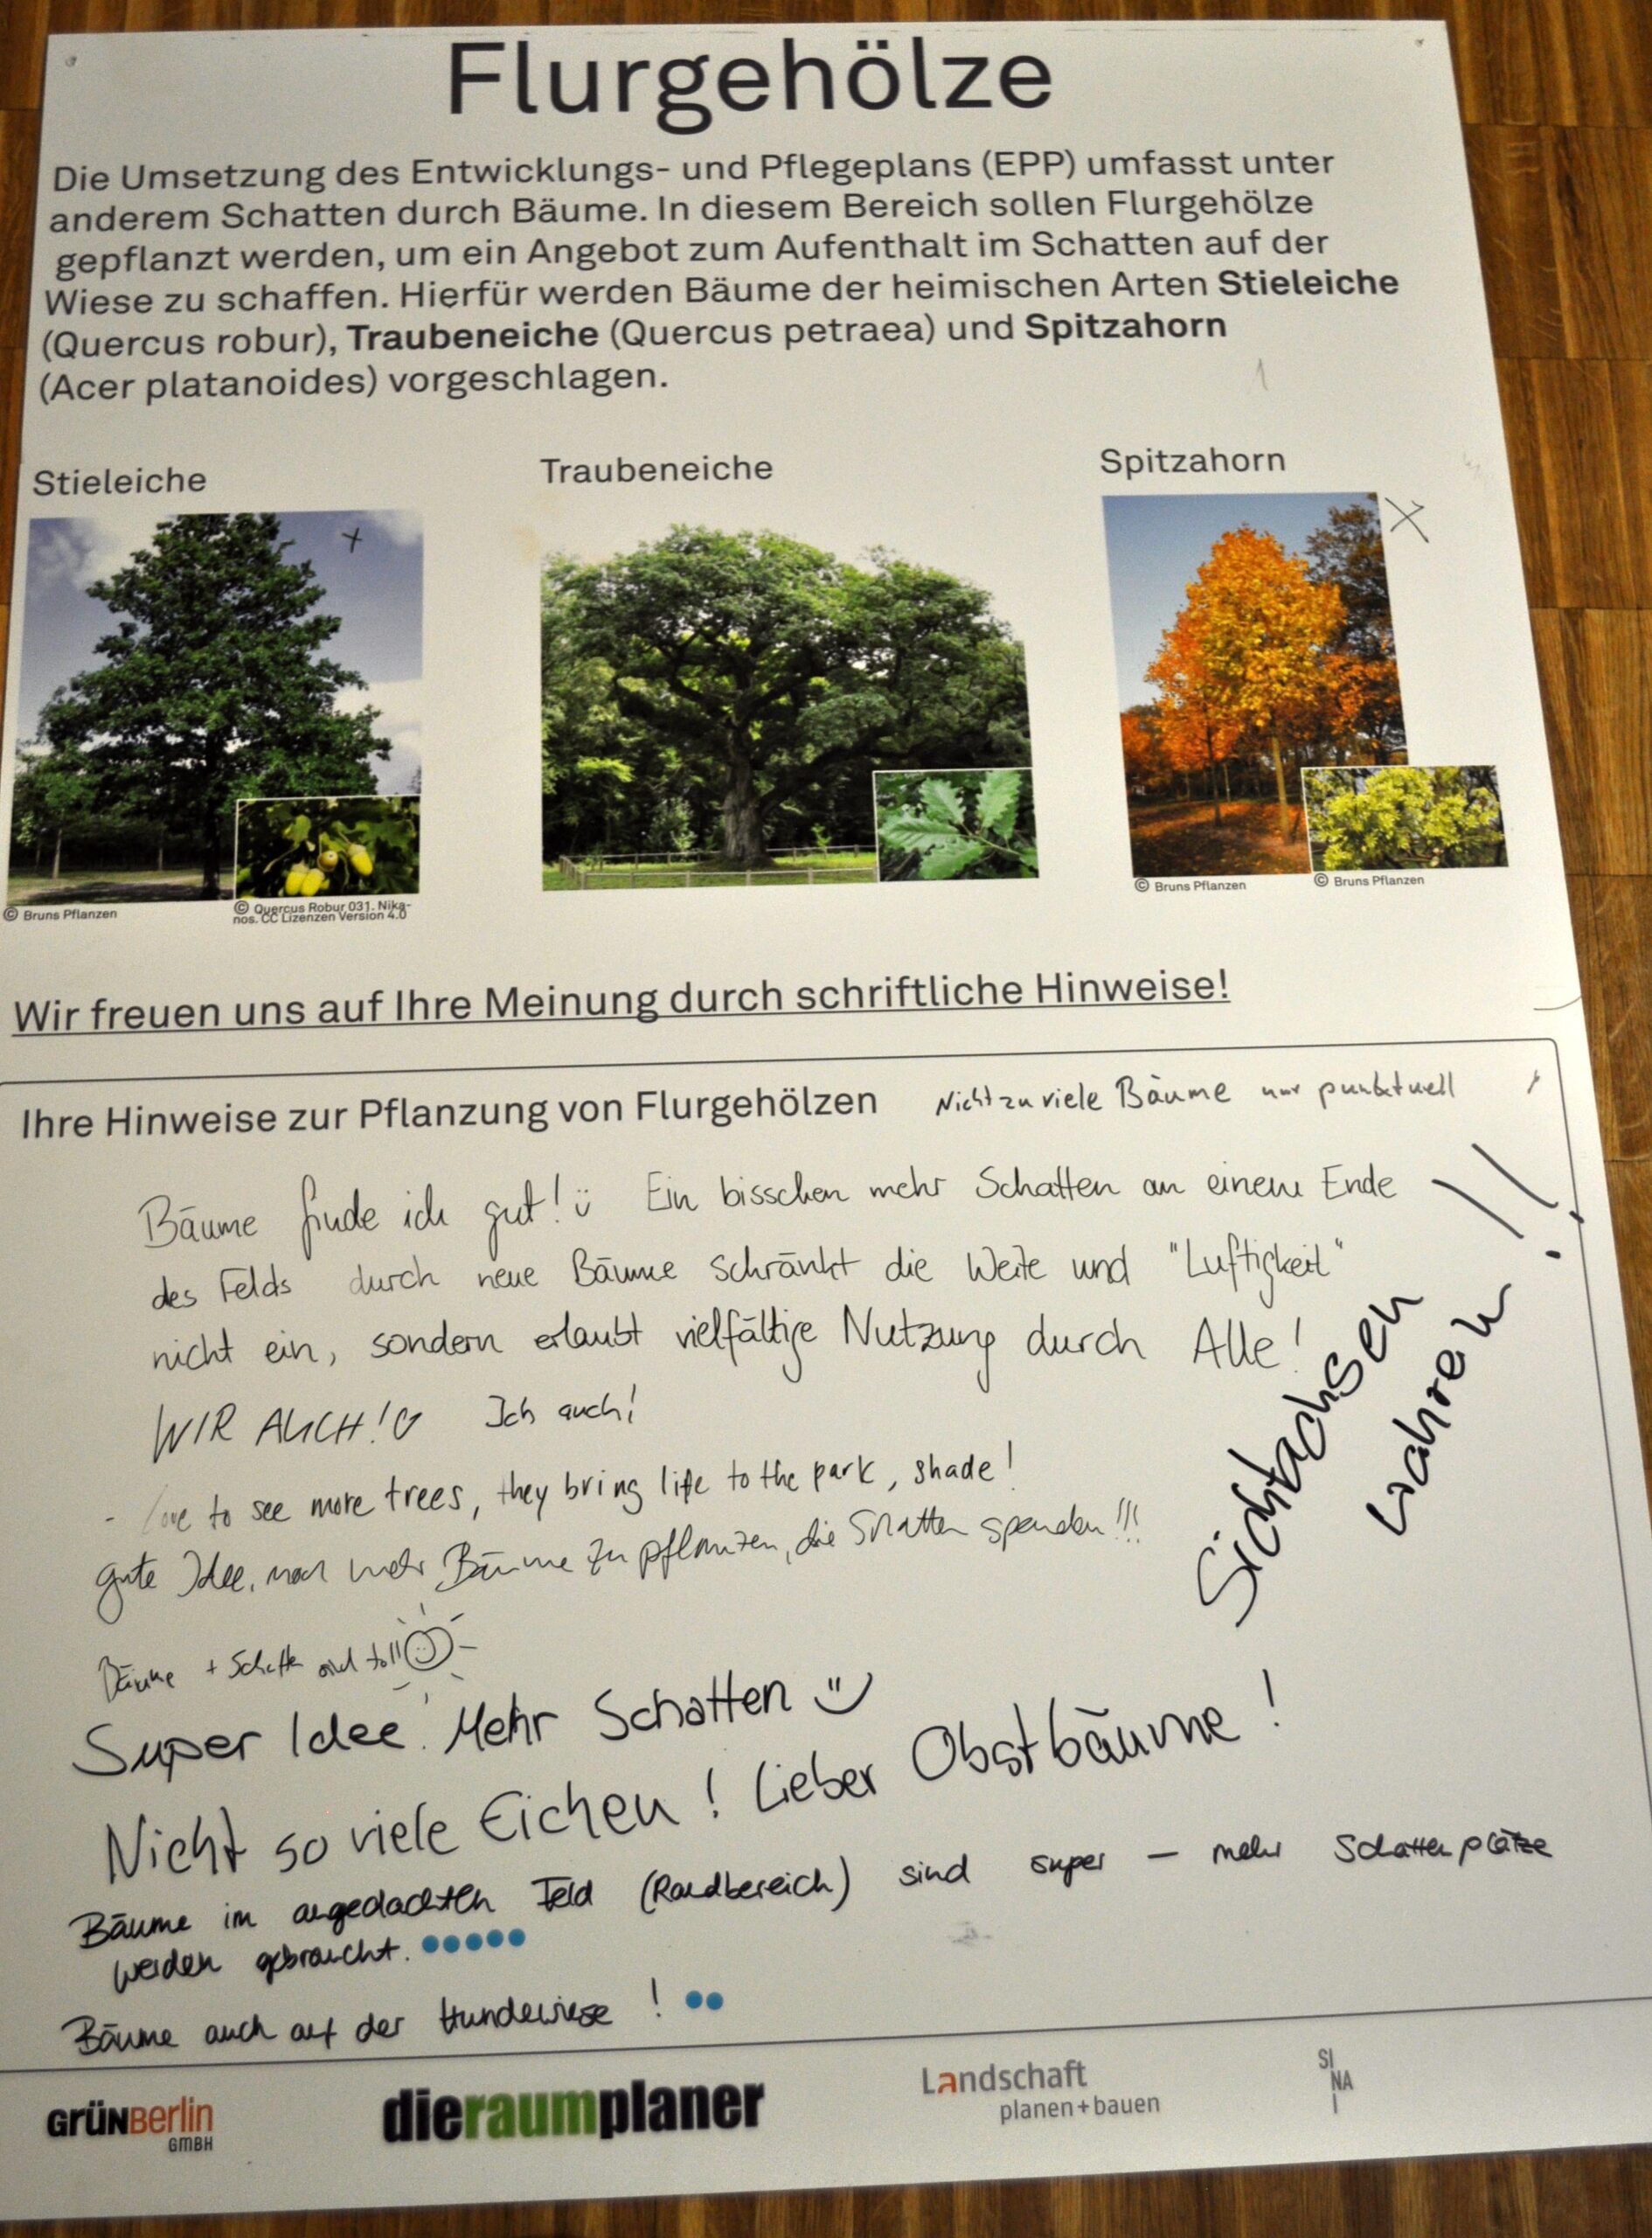 Flurgehölze
Die Umsetzung des Entwicklungs- und Pflegeplans (EPP) umfasst unter
anderem Schatten durch Bäume. In diesem Bereich sollen Flurgehölze
gepflanzt werden, um ein Angebot zum Aufenthalt im Schatten auf der
Wiese zu schaffen. Hierfür werden Bäume der heimischen Arten Stieleiche
(Quercus robur), Traubeneiche (Quercus petraea) und Spitzahorn
(Acer platanoides) vorgeschlagen.
Stieleiche
Traubeneiche
Spitzahorn
© Bruns Pflanzen
© Quercus Robur 031. Nika-
nos. CC Lizenzen Version 4.0
© Bruns Pflanzen
© Bruns Pflanzen
Wir freuen uns auf Ihre Meinung durch schriftliche Hinweise!
Ihre Hinweise zur Pflanzung von Flurgehölzen
Nicht zu viele Bäume nur punktuell
Bäume finde ich gut! Ein bisschen mehr Schatten an einem Ende
des Felds durch neue Bäume schränkt die Weite und "Luftigkeit"
nicht ein, sondern erlaubt vielfältige Nutzung durch Alle!
WIR AUCH! Ich auch!
- love to see more trees, they bring life to the park, shade!
gute Idee, noch mehr Bäume zu pflanzen, die Schatten spenden!!!
Sichtachsen
wahren!!
Bäume + Schatten sind toll!
Super Idee! Mehr Schatten
Nicht so viele Eichen! Lieber Obstbäume!
Bäume im angedachten Feld (Randbereich) sind super – mehr Schattenplätze
werden gebraucht.
Bäume auch auf der Hundewiese!
GRÜNBerlin
GMBH
dieraumplaner
Landschaft
planen+bauen
SI
NA
I